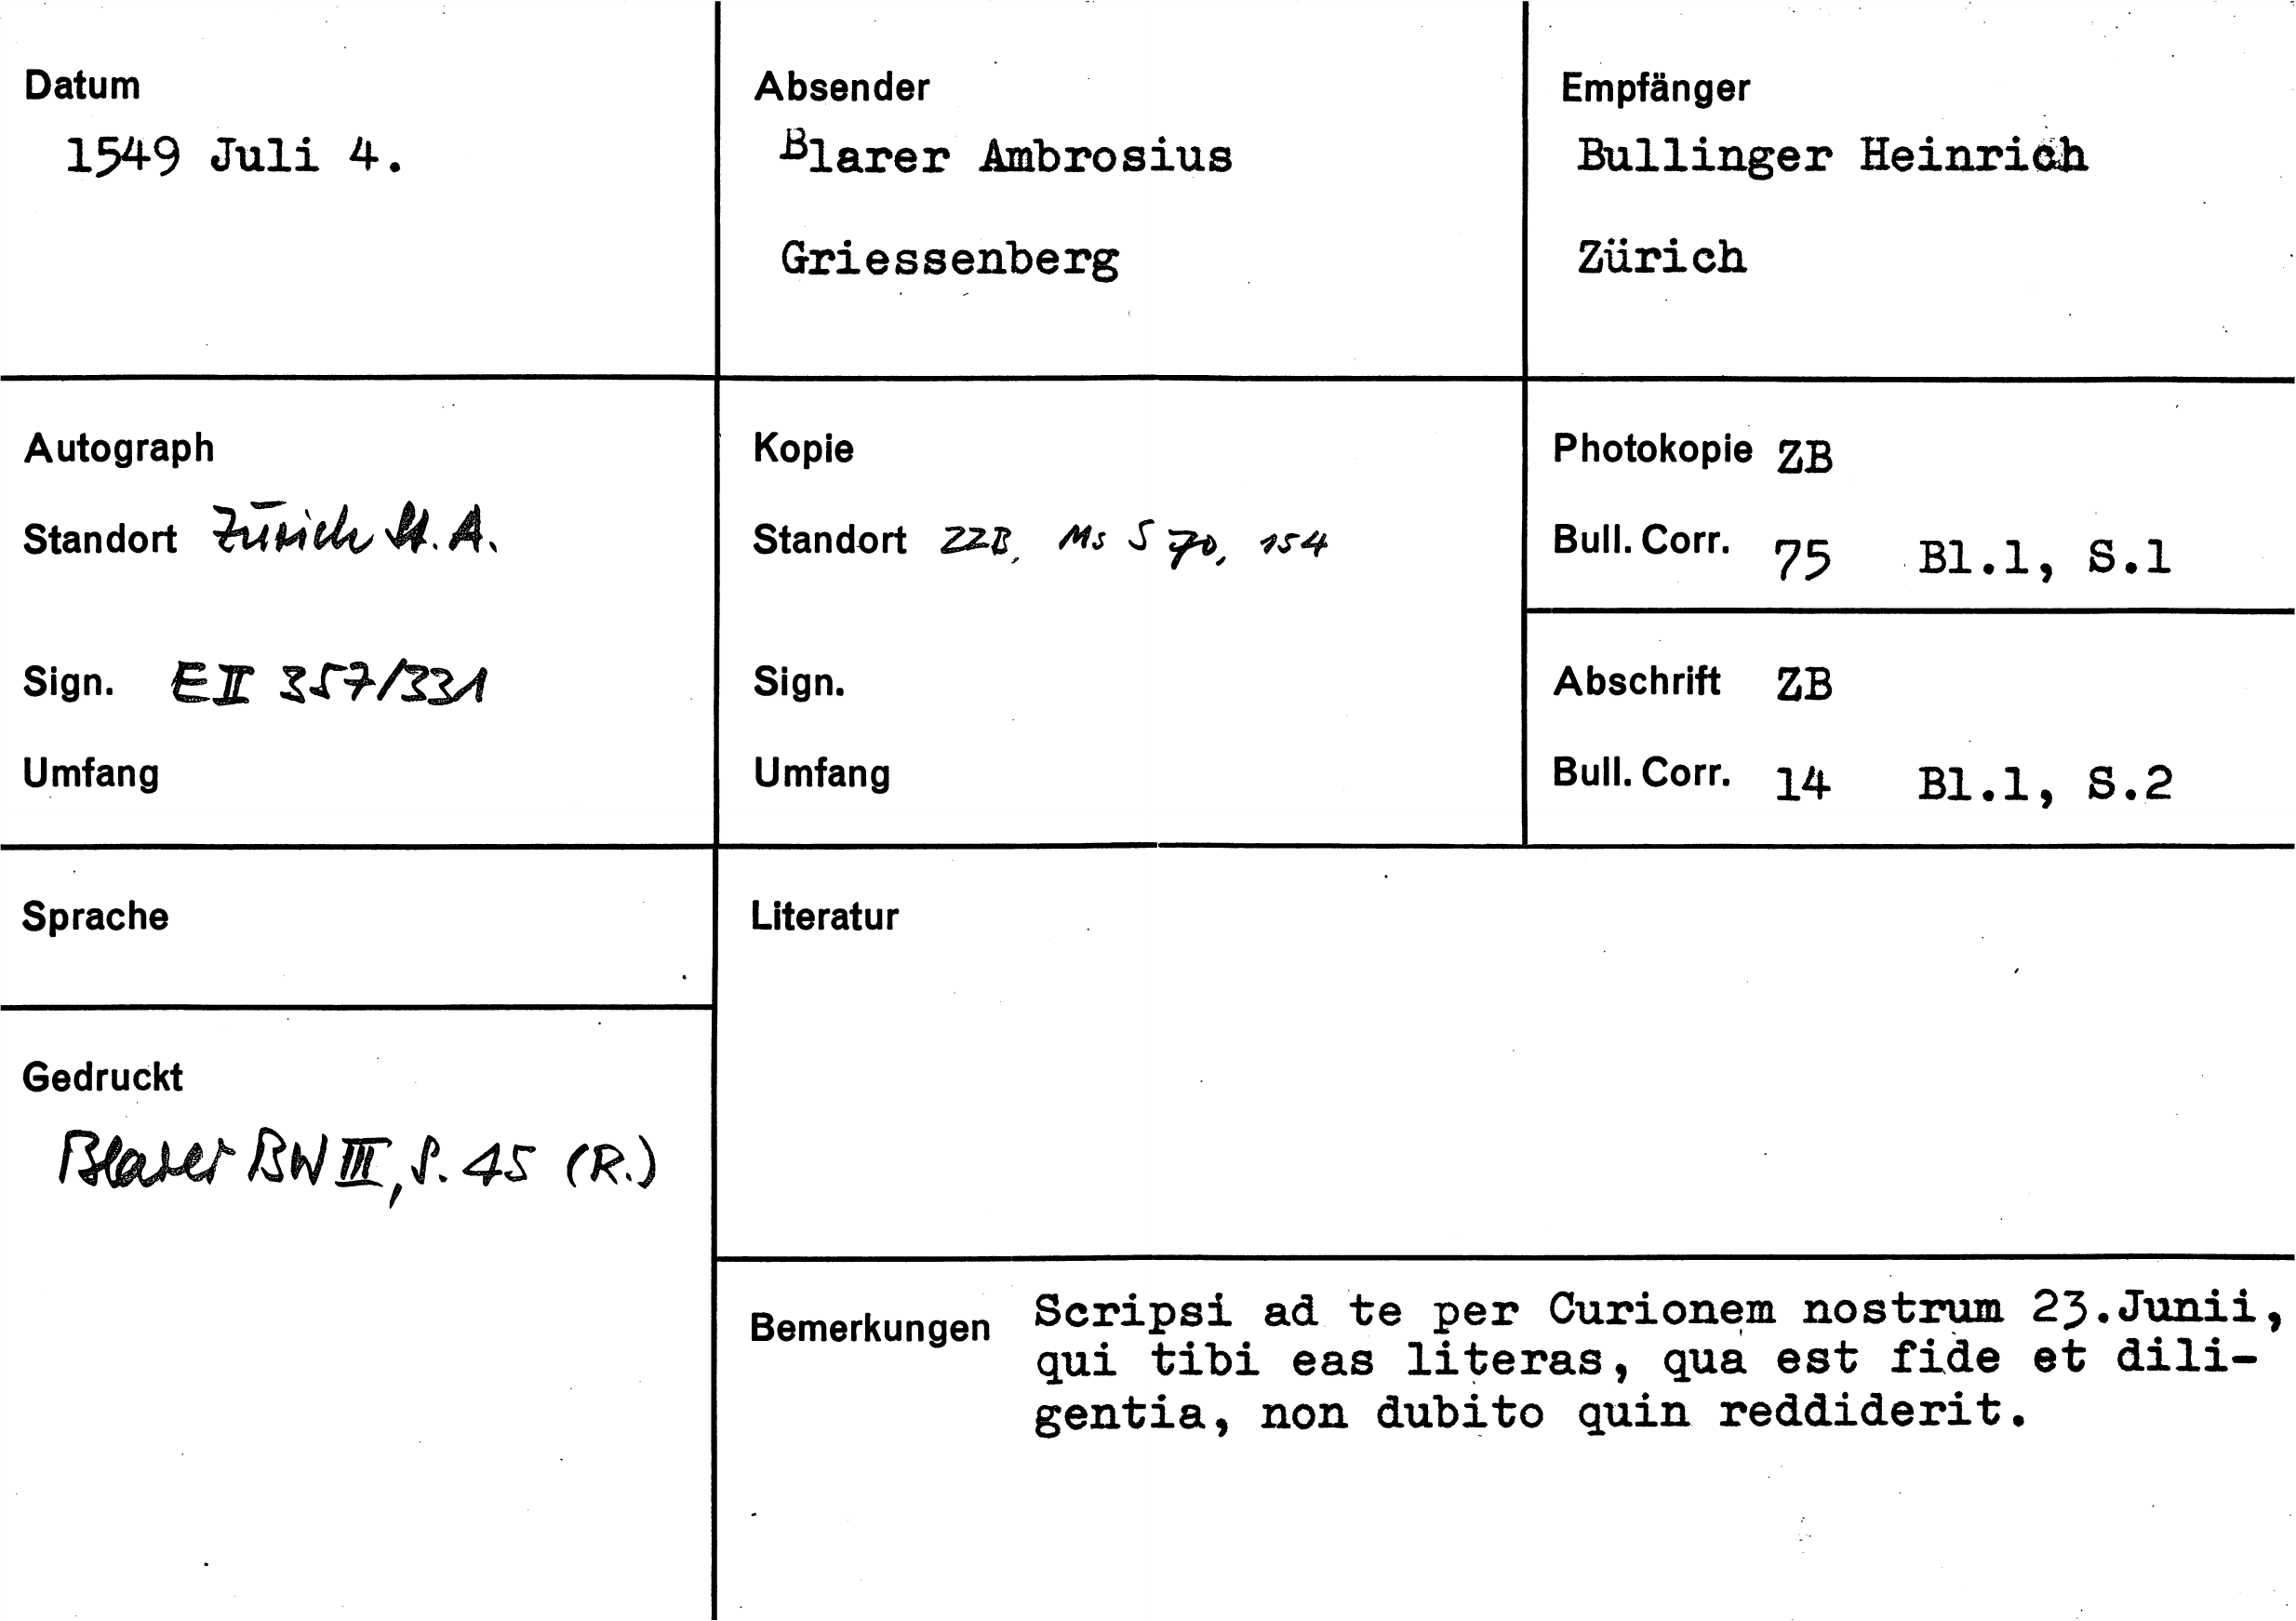 Datum
1549 Juli 4.
Absender
Blarer Ambrosius
Griessenberg
Empfänger
Bullinger Heinrich
Zürich
Autograph
Standort Zürich St. A.
Sign. E II 357/331
Umfang
Kopie
Standort ZZB, Ms S 70, 154
Sign.
Umfang
Photokopie ZB
Bull. Corr. 75 Bl.1, S.1
Abschrift ZB
Bull. Corr. 14 Bl.1, S.2
Sprache
Literatur
Gedruckt
Blarer BW III, S. 45 (R.)
Bemerkungen Scripsi ad te per Curionem nostrum 23.Junii,
qui tibi eas literas, qua est fide et dili-
gentia, non dubito quin reddiderit.